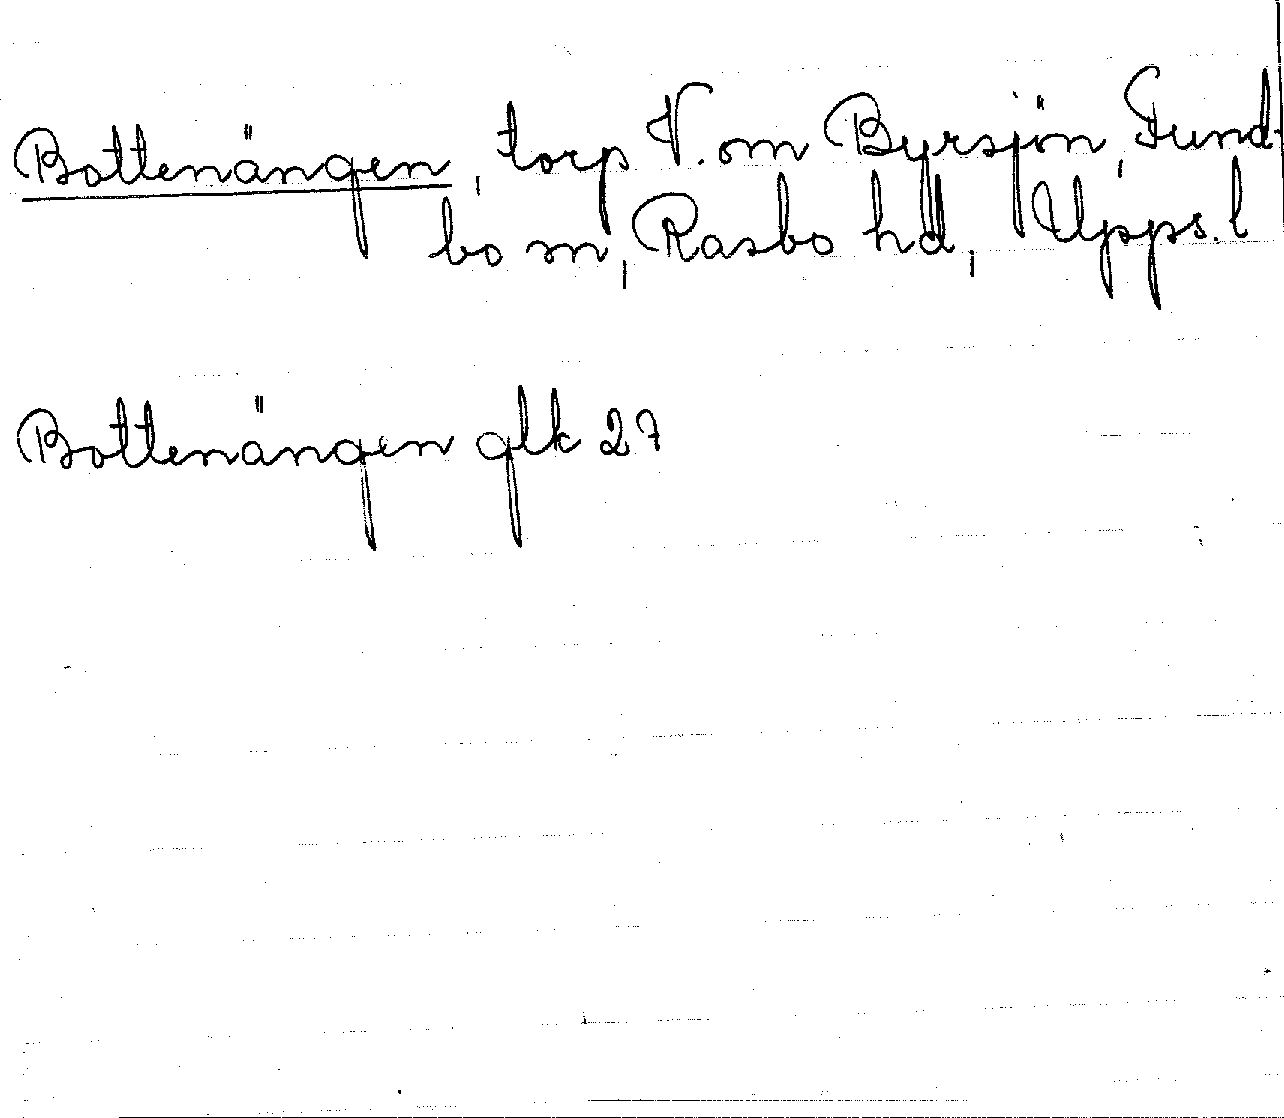 Bottenängen, torp V. om Byrsjön, Fund-
bo sn, Rasbo hd, Upps. l
Bottenängen glk 27